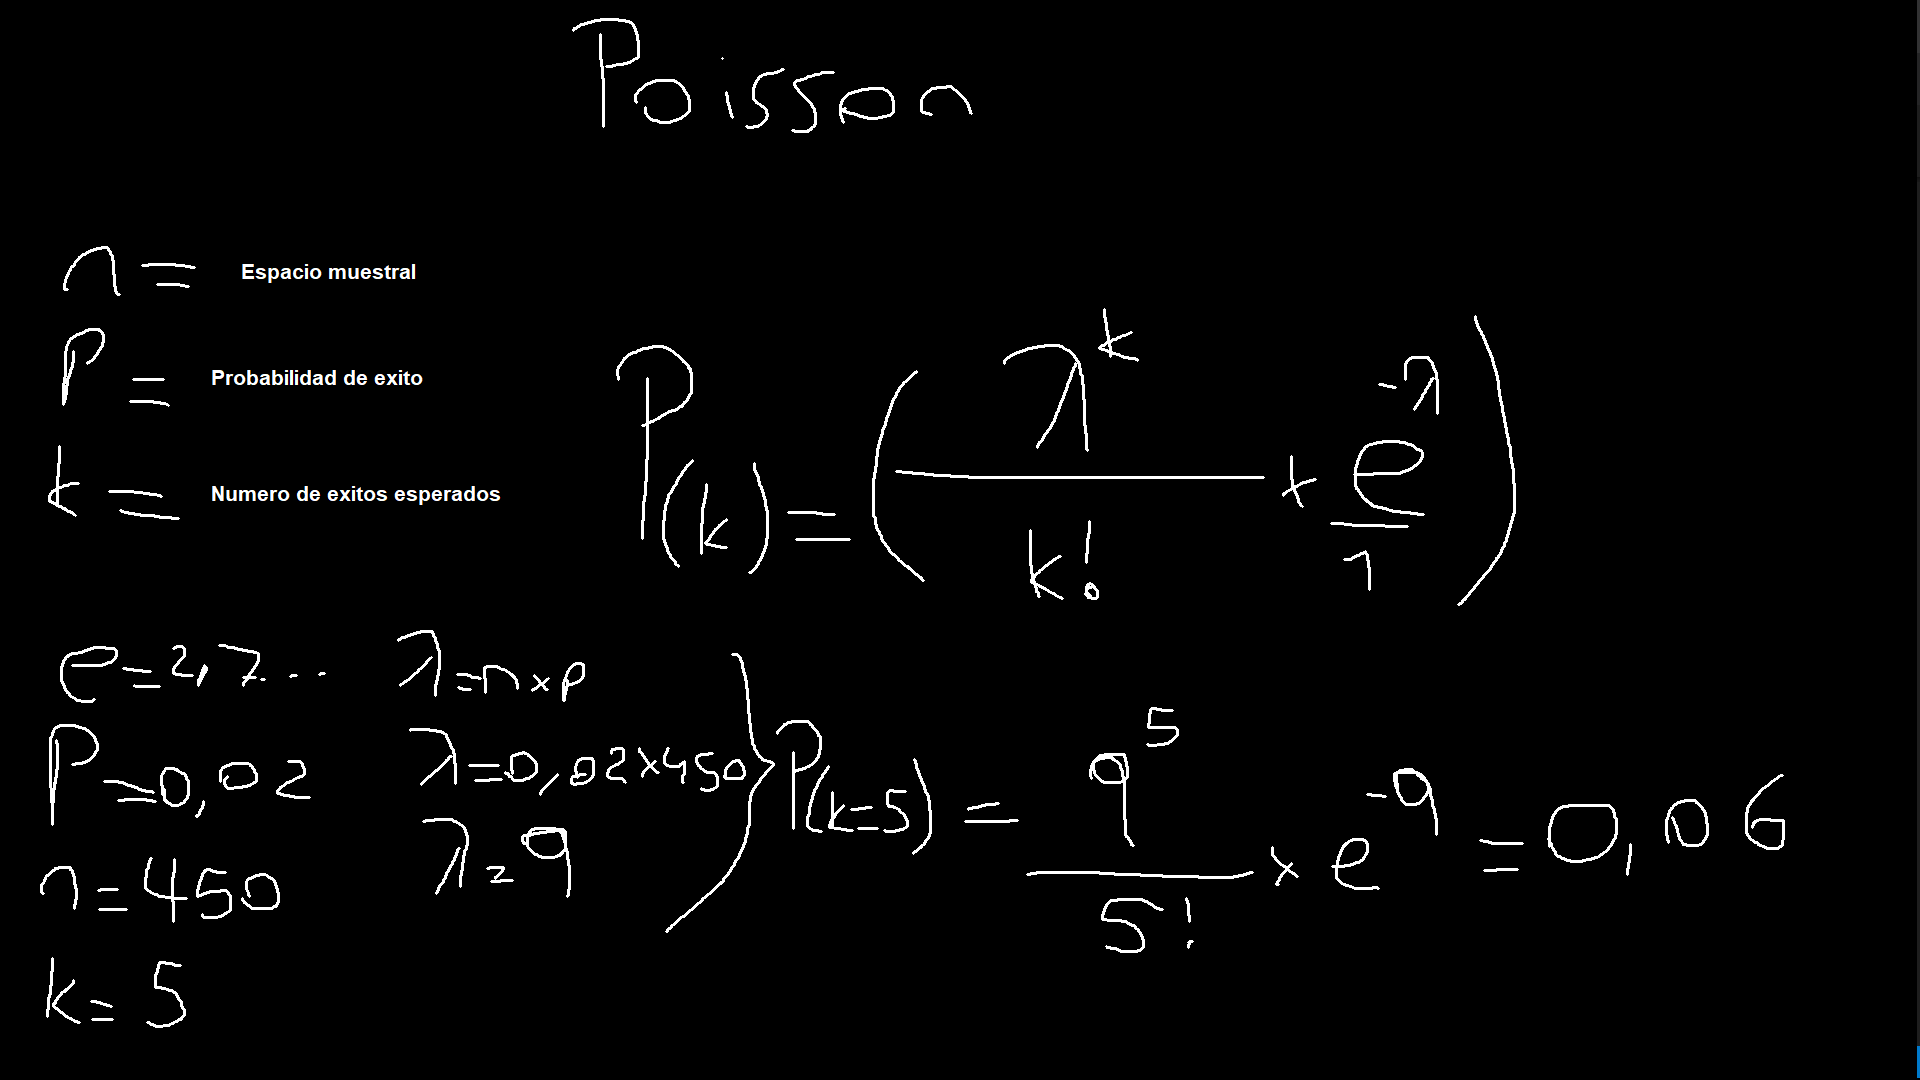 Poisson
n = Espacio muestral
P = Probabilidad de exito
k = Numero de exitos esperados
P(k) = ( λ^k / k! × e^-λ / 1 )
e = 2,7...
P = 0,02
n = 450
k = 5
λ = n × p
λ = 0,02 × 450
λ = 9
P(k=5) = 9^5 / 5! × e^-9 = 0,06